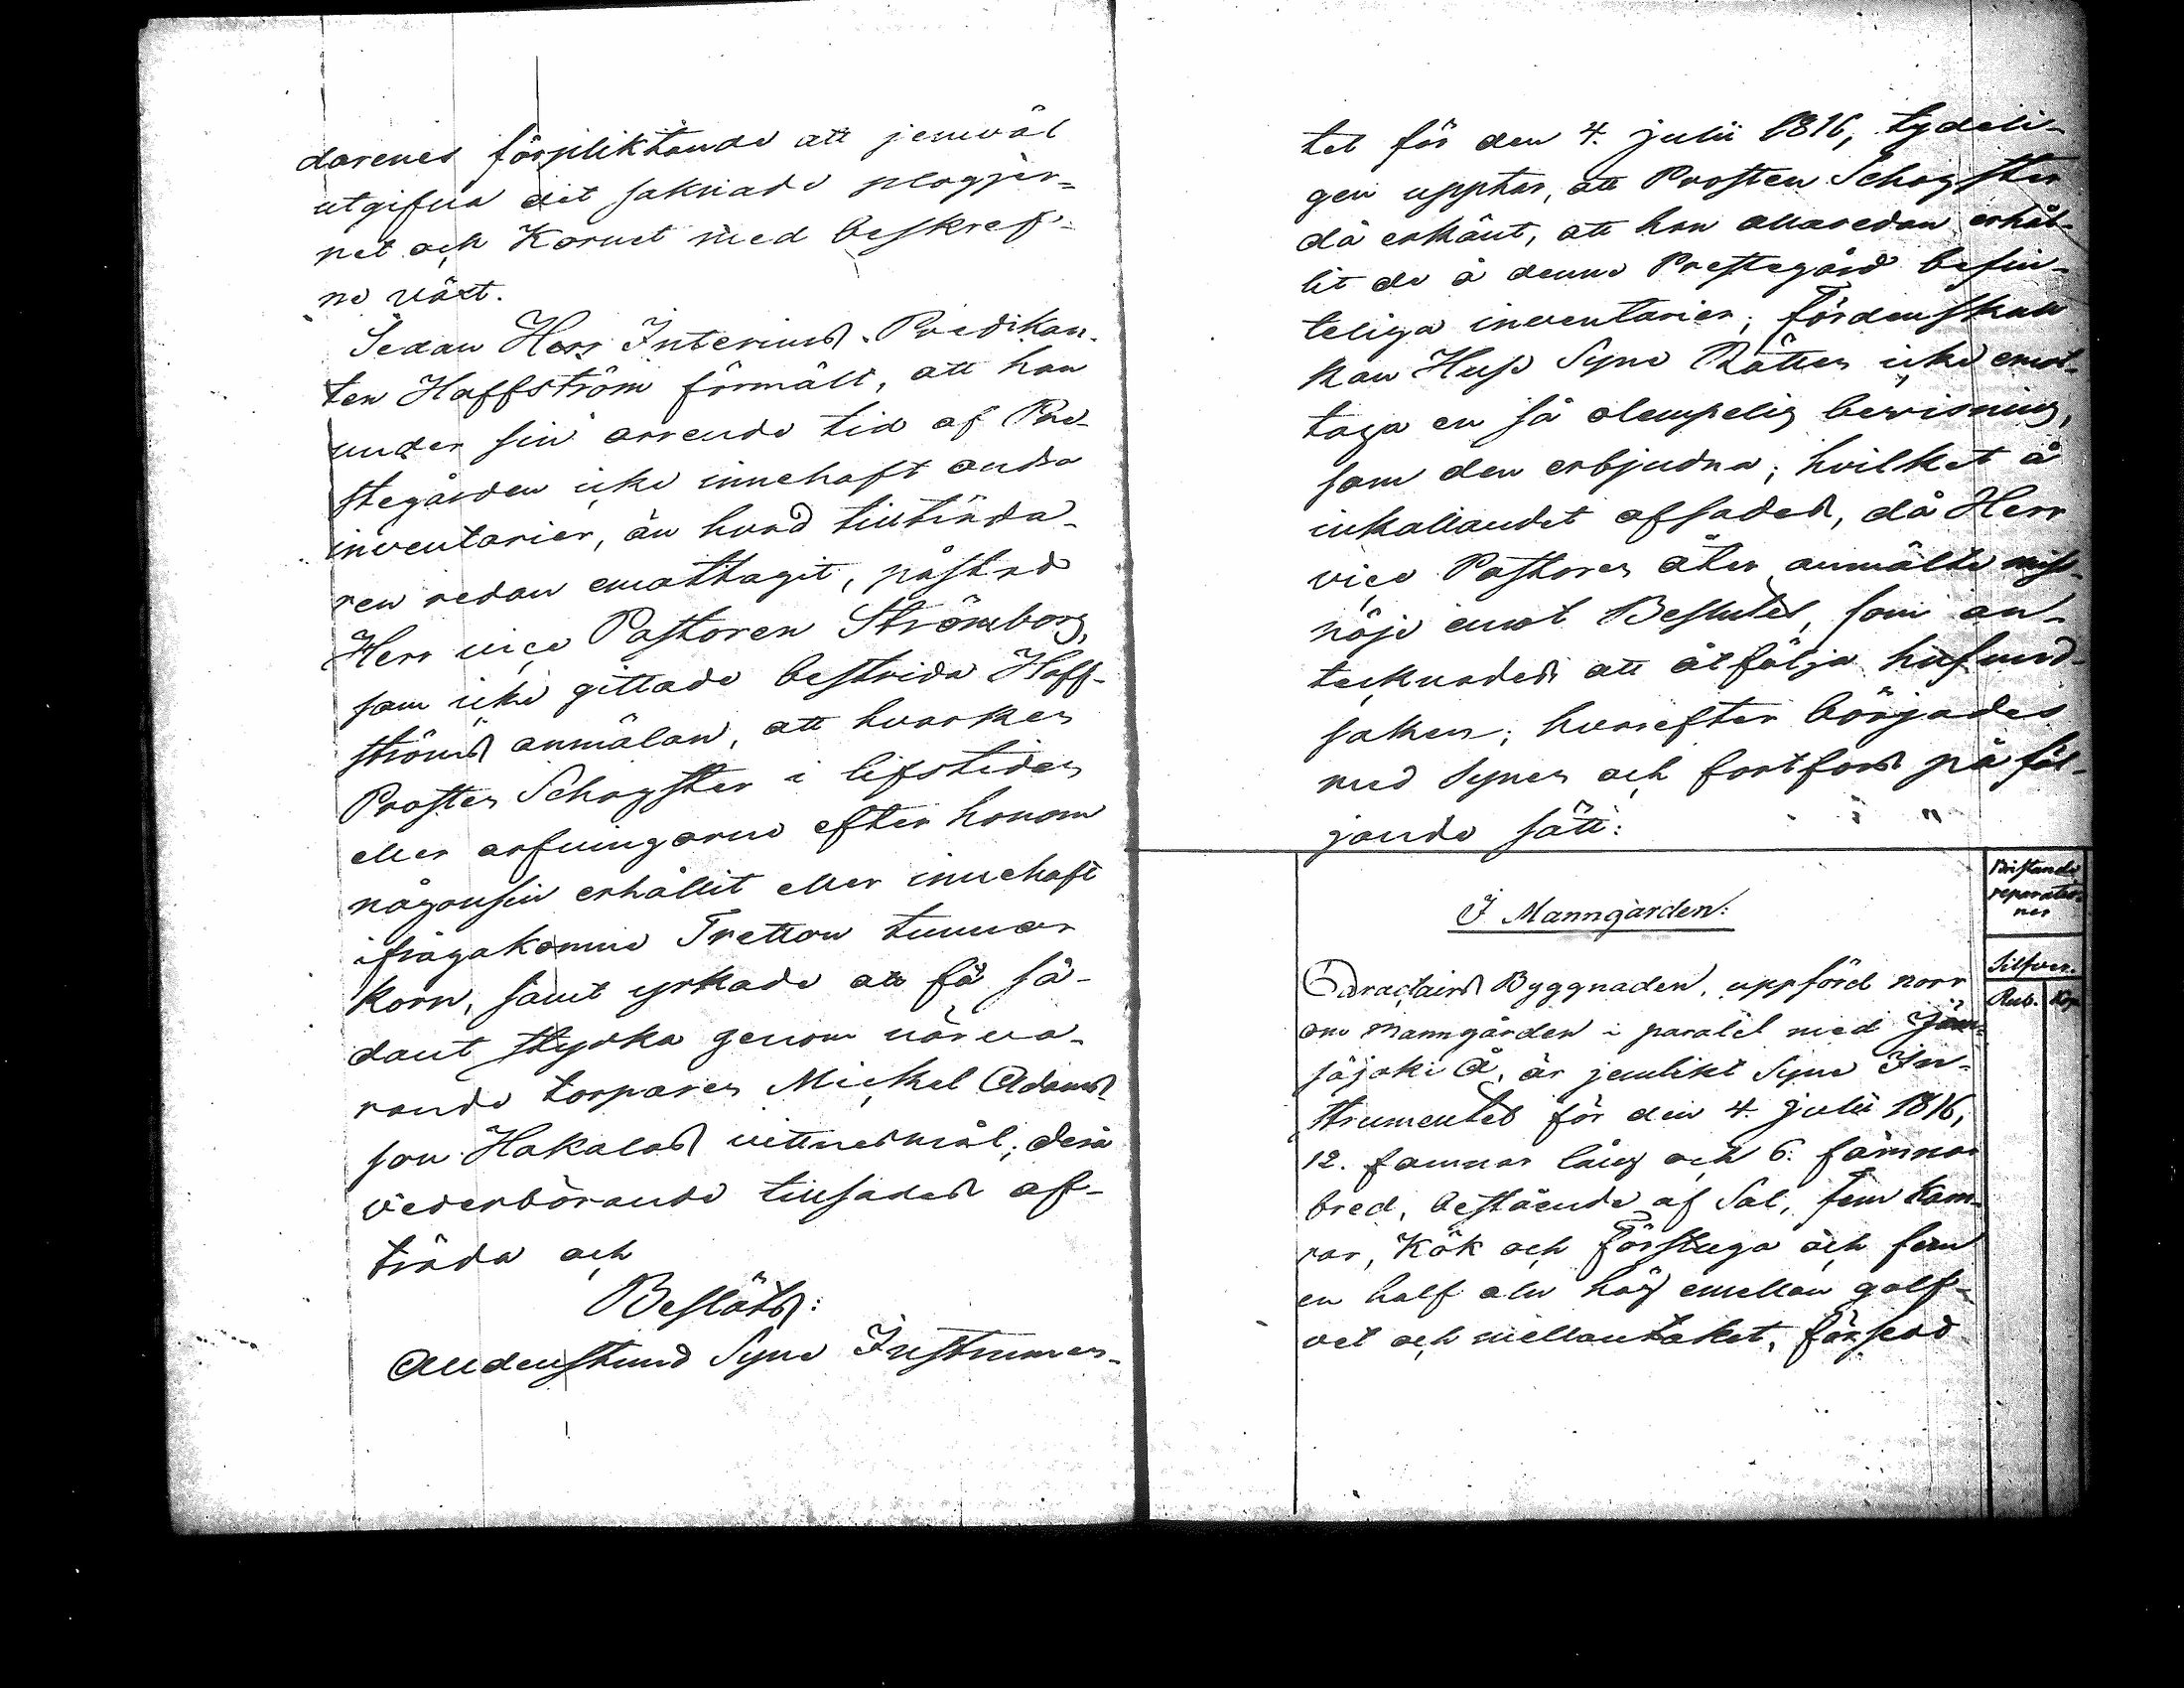 darenes förpliktande att jemväl
utgifva det saknade plogjer-
net och Kornet med beskref-
ne växt.
Sedan Herr Interims-Predikan-
ten Haffström förmält, att han
under sin arrende tid af Pre-
stegården icke innehaft andra
inventarier, än hvad tillträda-
ren redan emottagit, påstod
Herr vice Pastoren Strömborg,
som icke gittade bestrida Haff-
ströms anmälan, att hvarken
Prosten Schogster i lifstiden
eller arfvingarne efter honom
någonsin erhållit eller innehaft
ifrågakomne Tretton tunnor
korn, samt yrkade att få så-
dant styrka genom närva-
rande torparen Michel Adams
son Hakalas vittnesmål; dera
vederbörande tillsades af-
träda och
Beslöts:
Alldenstund Syne Instrumen-
tet för den 4. julii 1816, tydeli-
gen upptar, att Prosten Schogster
då erkänt, att han allaredan erhål-
lit de å denne Prestegård befin-
teliga inventarier; Fördenskull
kan Hllp Syne Rätten icke emot-
taga en så olempelig bevisning,
som den erbjudna; hvilket å
inkallandet afsades, då Herr
vice Pastoren åter anmälte miss-
nöje emot Beslutet, som an-
tecknades att åtfölja hufvud-
saken; hvarefter börjades
med Synen och fortfors på föl-
jande sätt:
Bristande
reparatio-
ner
I Manngården:
Silfver.
Rub. Kop
Caractairs Byggnaden, uppförd norr
om manngården i paralel med Jäm-
säjoki Å, är jemlikt Syne In-
strumentet för den 4. julii 1816,
12. famnar lång och 6. famnar
bred, bestående af Sal, fem kam-
rar, Kök och Förstuga och fem
en half aln hög emellan golf-
vet och mellantaket, försedd